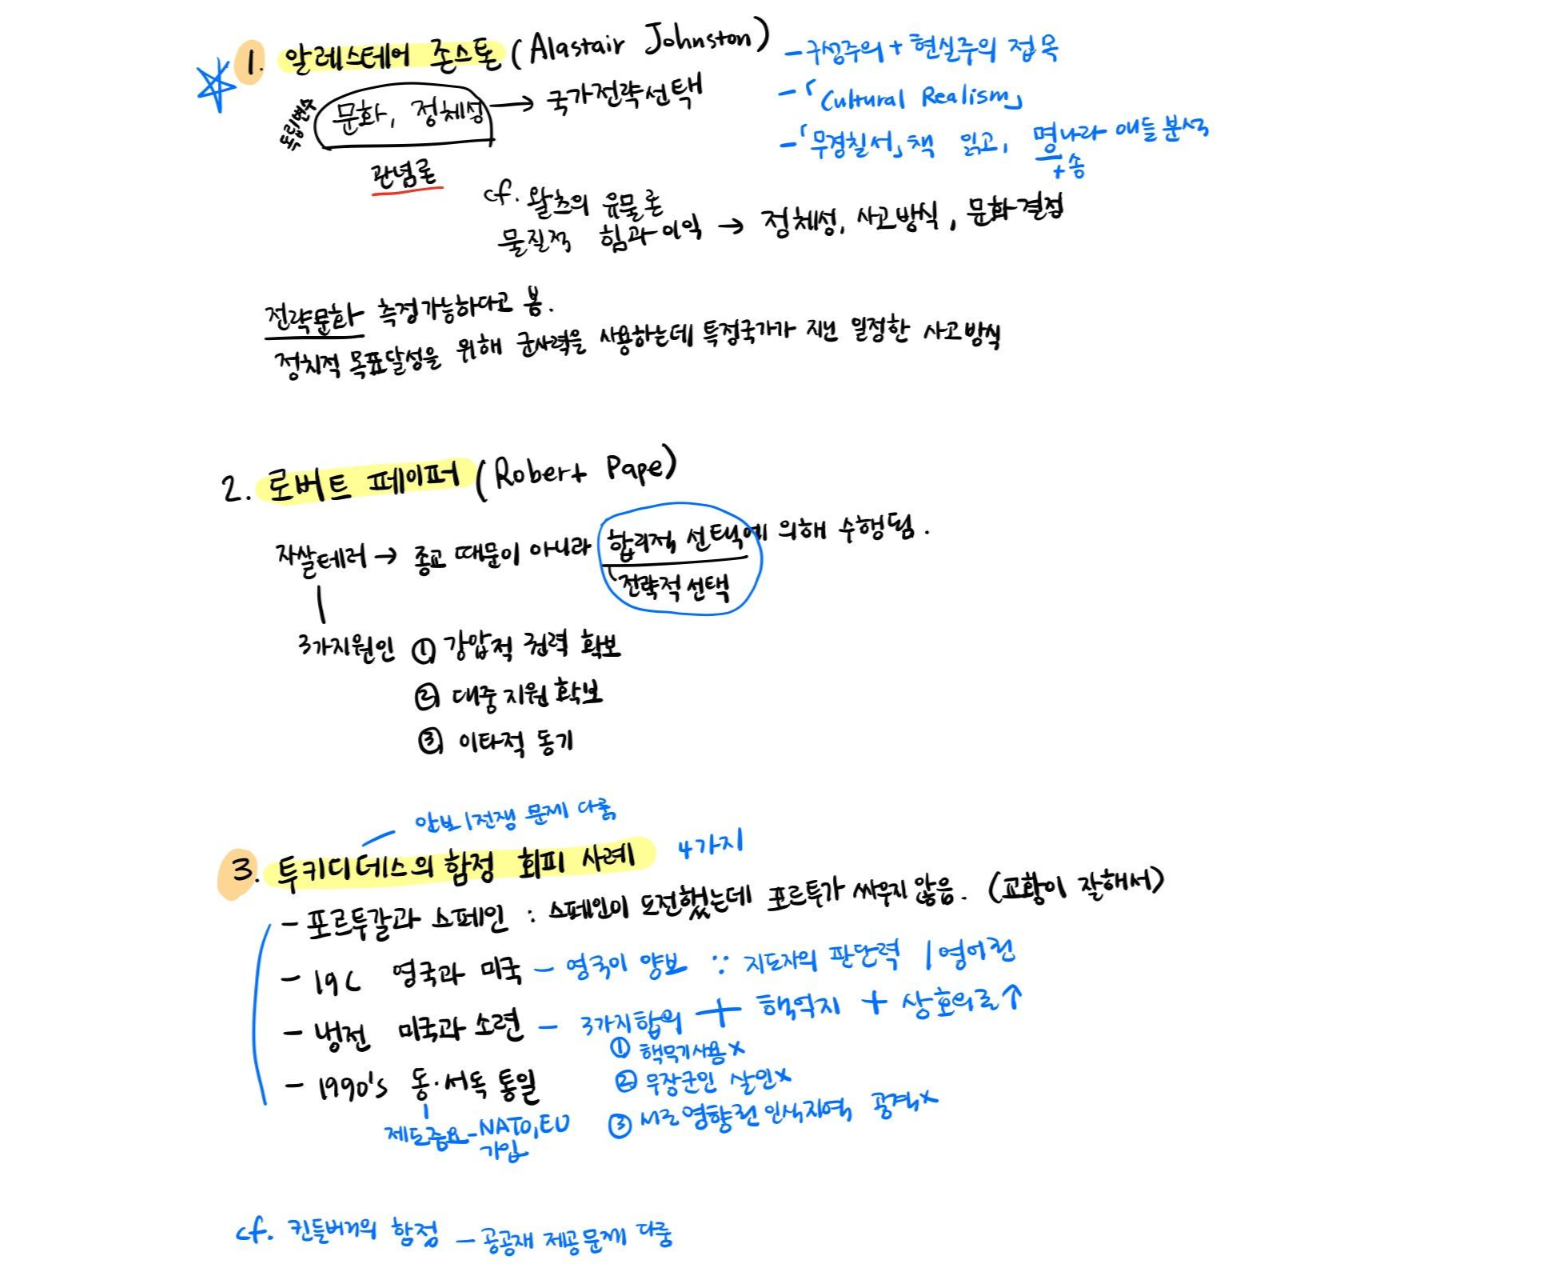 1. 알레스테어 존스톤 (Alastair Johnston)
- 구성주의 + 현실주의 접목
독립변수 문화, 정체성 → 국가전략선택
-「Cultural Realism」
관념론
-「무경칠서」책 읽고, 명나라 애들 분석
+송
cf. 왈츠의 유물론
물질적 힘과 이익 → 정체성, 사고방식, 문화결정
전략문화 측정가능하다고 봄.
정치적 목표달성을 위해 군사력을 사용하는데 특정국가가 지닌 일정한 사고방식
2. 로버트 페이퍼 (Robert Pape)
자살테러 → 종교 때문이 아니라 합리적 선택에 의해 수행됨.
전략적 선택
3가지원인 ① 강압적 권력 확보
② 대중지원 확보
③ 이타적 동기
안보/전쟁 문제 다룸
3. 투키디데스의 함정 회피 사례 4가지
- 포르투갈과 스페인 : 스페인이 도전했는데 포르투가 싸우지 않음. (교황이 잘해서)
- 19C 영국과 미국 - 영국이 양보 ∵ 지도자의 판단력 / 영어권
- 냉전 미국과 소련 - 3가지합의 + 핵억지 + 상호의존↑
① 핵무기사용 x
② 무장군인 살인x
③ 서로 영향권 인식지역 공격x
- 1990's 동·서독 통일
제도중요 - NATO, EU
가입
cf. 킨들버거의 함정 - 공공재 제공문제 다룸